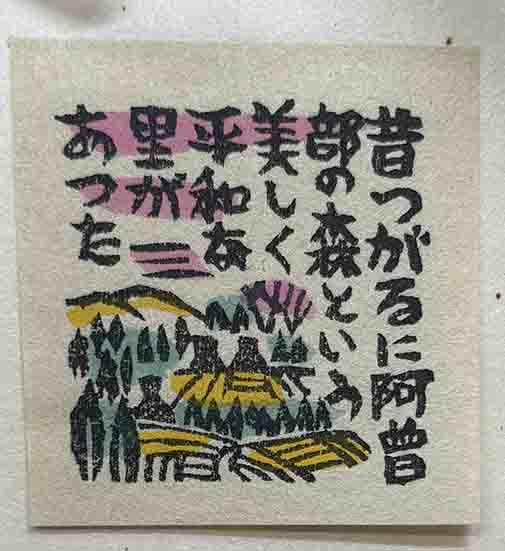 昔つがるに阿曽
部の森という
美しく
平和な
里が
あつた